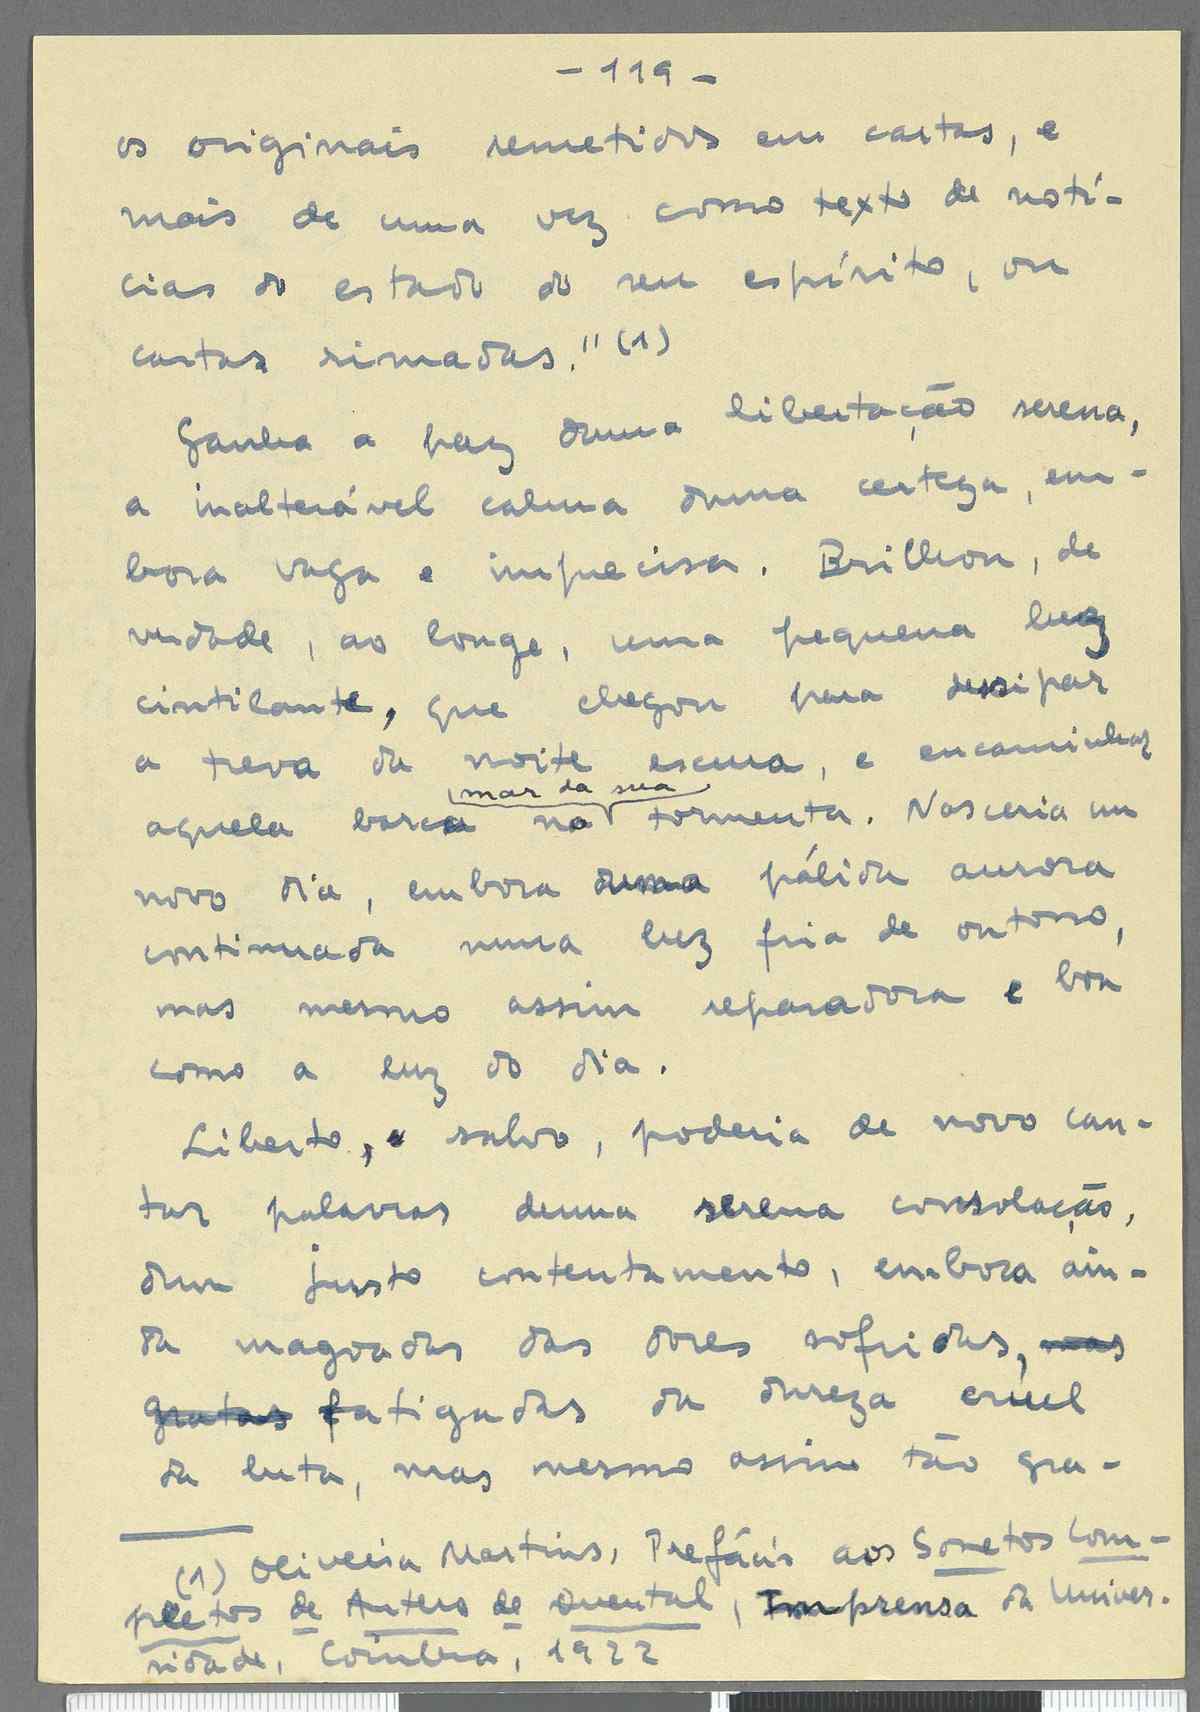 - 119 -
os originais remetidos em cartas, e
mais de uma vez como texto de notí-
cias do estado do seu espírito, ou
cartas rimadas." (1)
Ganha a paz duma libertação serena,
a inalterável calma duma certeza, em-
bora vaga e imprecisa. Brilhou, de
verdade, ao longe, uma pequena luz
cintilante, que chegou para dessipar
a treva da noite escura, e encaminhar
mar da sua
aquela barca no tormenta. Nasceria um
novo dia, embora duma pálida aurora
continuada numa luz fria de outono,
mas mesmo assim reparadora e boa
como a luz do dia.
Liberto, e salvo, poderia de novo can-
tar palavras duma serena consolação,
dum justo contentamento, embora ain-
da magoadas das dores sofridas, mas
gratas fatigadas da dureza cruel
da luta, mas mesmo assim tão gra-
(1) Oliveira Martins, Prefácio aos Sonetos Com-
pletos de Antero de Quental, Imprensa da Univer-
sidade, Coimbra, 1922